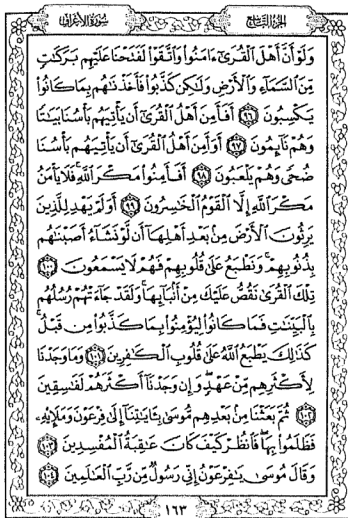 سورة الأعراف
الجزء التاسع
وَلَوْ أَنَّ أَهْلَ ٱلْقُرَىٰٓ ءَامَنُوا۟ وَٱتَّقَوْا۟ لَفَتَحْنَا عَلَيْهِم بَرَكَٰتٍ
مِّنَ ٱلسَّمَآءِ وَٱلْأَرْضِ وَلَٰكِن كَذَّبُوا۟ فَأَخَذْنَٰهُم بِمَا كَانُوا۟
يَكْسِبُونَ ٩٦ أَفَأَمِنَ أَهْلُ ٱلْقُرَىٰٓ أَن يَأْتِيَهُم بَأْسُنَا بَيَٰتًا
وَهُمْ نَآئِمُونَ ٩٧ أَوَأَمِنَ أَهْلُ ٱلْقُرَىٰٓ أَن يَأْتِيَهُم بَأْسُنَا
ضُحًى وَهُمْ يَلْعَبُونَ ٩٨ أَفَأَمِنُوا۟ مَكْرَ ٱللَّهِ فَلَا يَأْمَنُ
مَكْرَ ٱللَّهِ إِلَّا ٱلْقَوْمُ ٱلْخَٰسِرُونَ ٩٩ أَوَلَمْ يَهْدِ لِلَّذِينَ
يَرِثُونَ ٱلْأَرْضَ مِنۢ بَعْدِ أَهْلِهَآ أَن لَّوْ نَشَآءُ أَصَبْنَٰهُم
بِذُنُوبِهِمْ وَنَطْبَعُ عَلَىٰ قُلُوبِهِمْ فَهُمْ لَا يَسْمَعُونَ ١٠٠
تِلْكَ ٱلْقُرَىٰ نَقُصُّ عَلَيْكَ مِنْ أَنۢبَآئِهَا وَلَقَدْ جَآءَتْهُمْ رُسُلُهُم
بِٱلْبَيِّنَٰتِ فَمَا كَانُوا۟ لِيُؤْمِنُوا۟ بِمَا كَذَّبُوا۟ مِن قَبْلُ
كَذَٰلِكَ يَطْبَعُ ٱللَّهُ عَلَىٰ قُلُوبِ ٱلْكَٰفِرِينَ ١٠١ وَمَا وَجَدْنَا
لِأَكْثَرِهِم مِّنْ عَهْدٍ وَإِن وَجَدْنَآ أَكْثَرَهُمْ لَفَٰسِقِينَ
١٠٢ ثُمَّ بَعَثْنَا مِنۢ بَعْدِهِم مُّوسَىٰ بِـَٔايَٰتِنَآ إِلَىٰ فِرْعَوْنَ وَمَلَإِيْهِۦ
فَظَلَمُوا۟ بِهَا فَٱنظُرْ كَيْفَ كَانَ عَٰقِبَةُ ٱلْمُفْسِدِينَ ١٠٣
وَقَالَ مُوسَىٰ يَٰفِرْعَوْنُ إِنِّى رَسُولٌ مِّن رَّبِّ ٱلْعَٰلَمِينَ ١٠٤
١٦٣